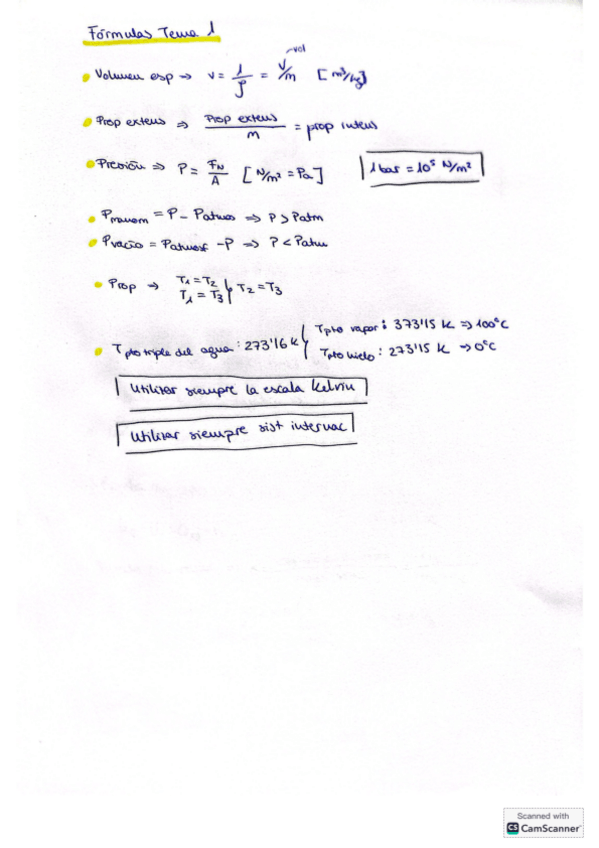 Fórmulas Tema 1
Volumen esp → v = 1/ρ = V/m → vol [m³/kg]
Prop extens ⇒ Prop extens / m = prop intens
Presión ⇒ P = FN/A [N/m² = Pa] 1 bar = 10⁵ N/m²
Pmanom = P - Patmos ⇒ P > Patm
Pvacío = Patmosf - P ⇒ P < Patm
Prop → T1 = T2
T1 = T3 } T2 = T3
Tpto triple del agua : 273'16 K { Tpto vapor : 373'15 K ⇒ 100°C
Tpto hielo : 273'15 K → 0°C
Utilizar siempre la escala Kelvin
Utilizar siempre sist internac
Scanned with
CS CamScanner